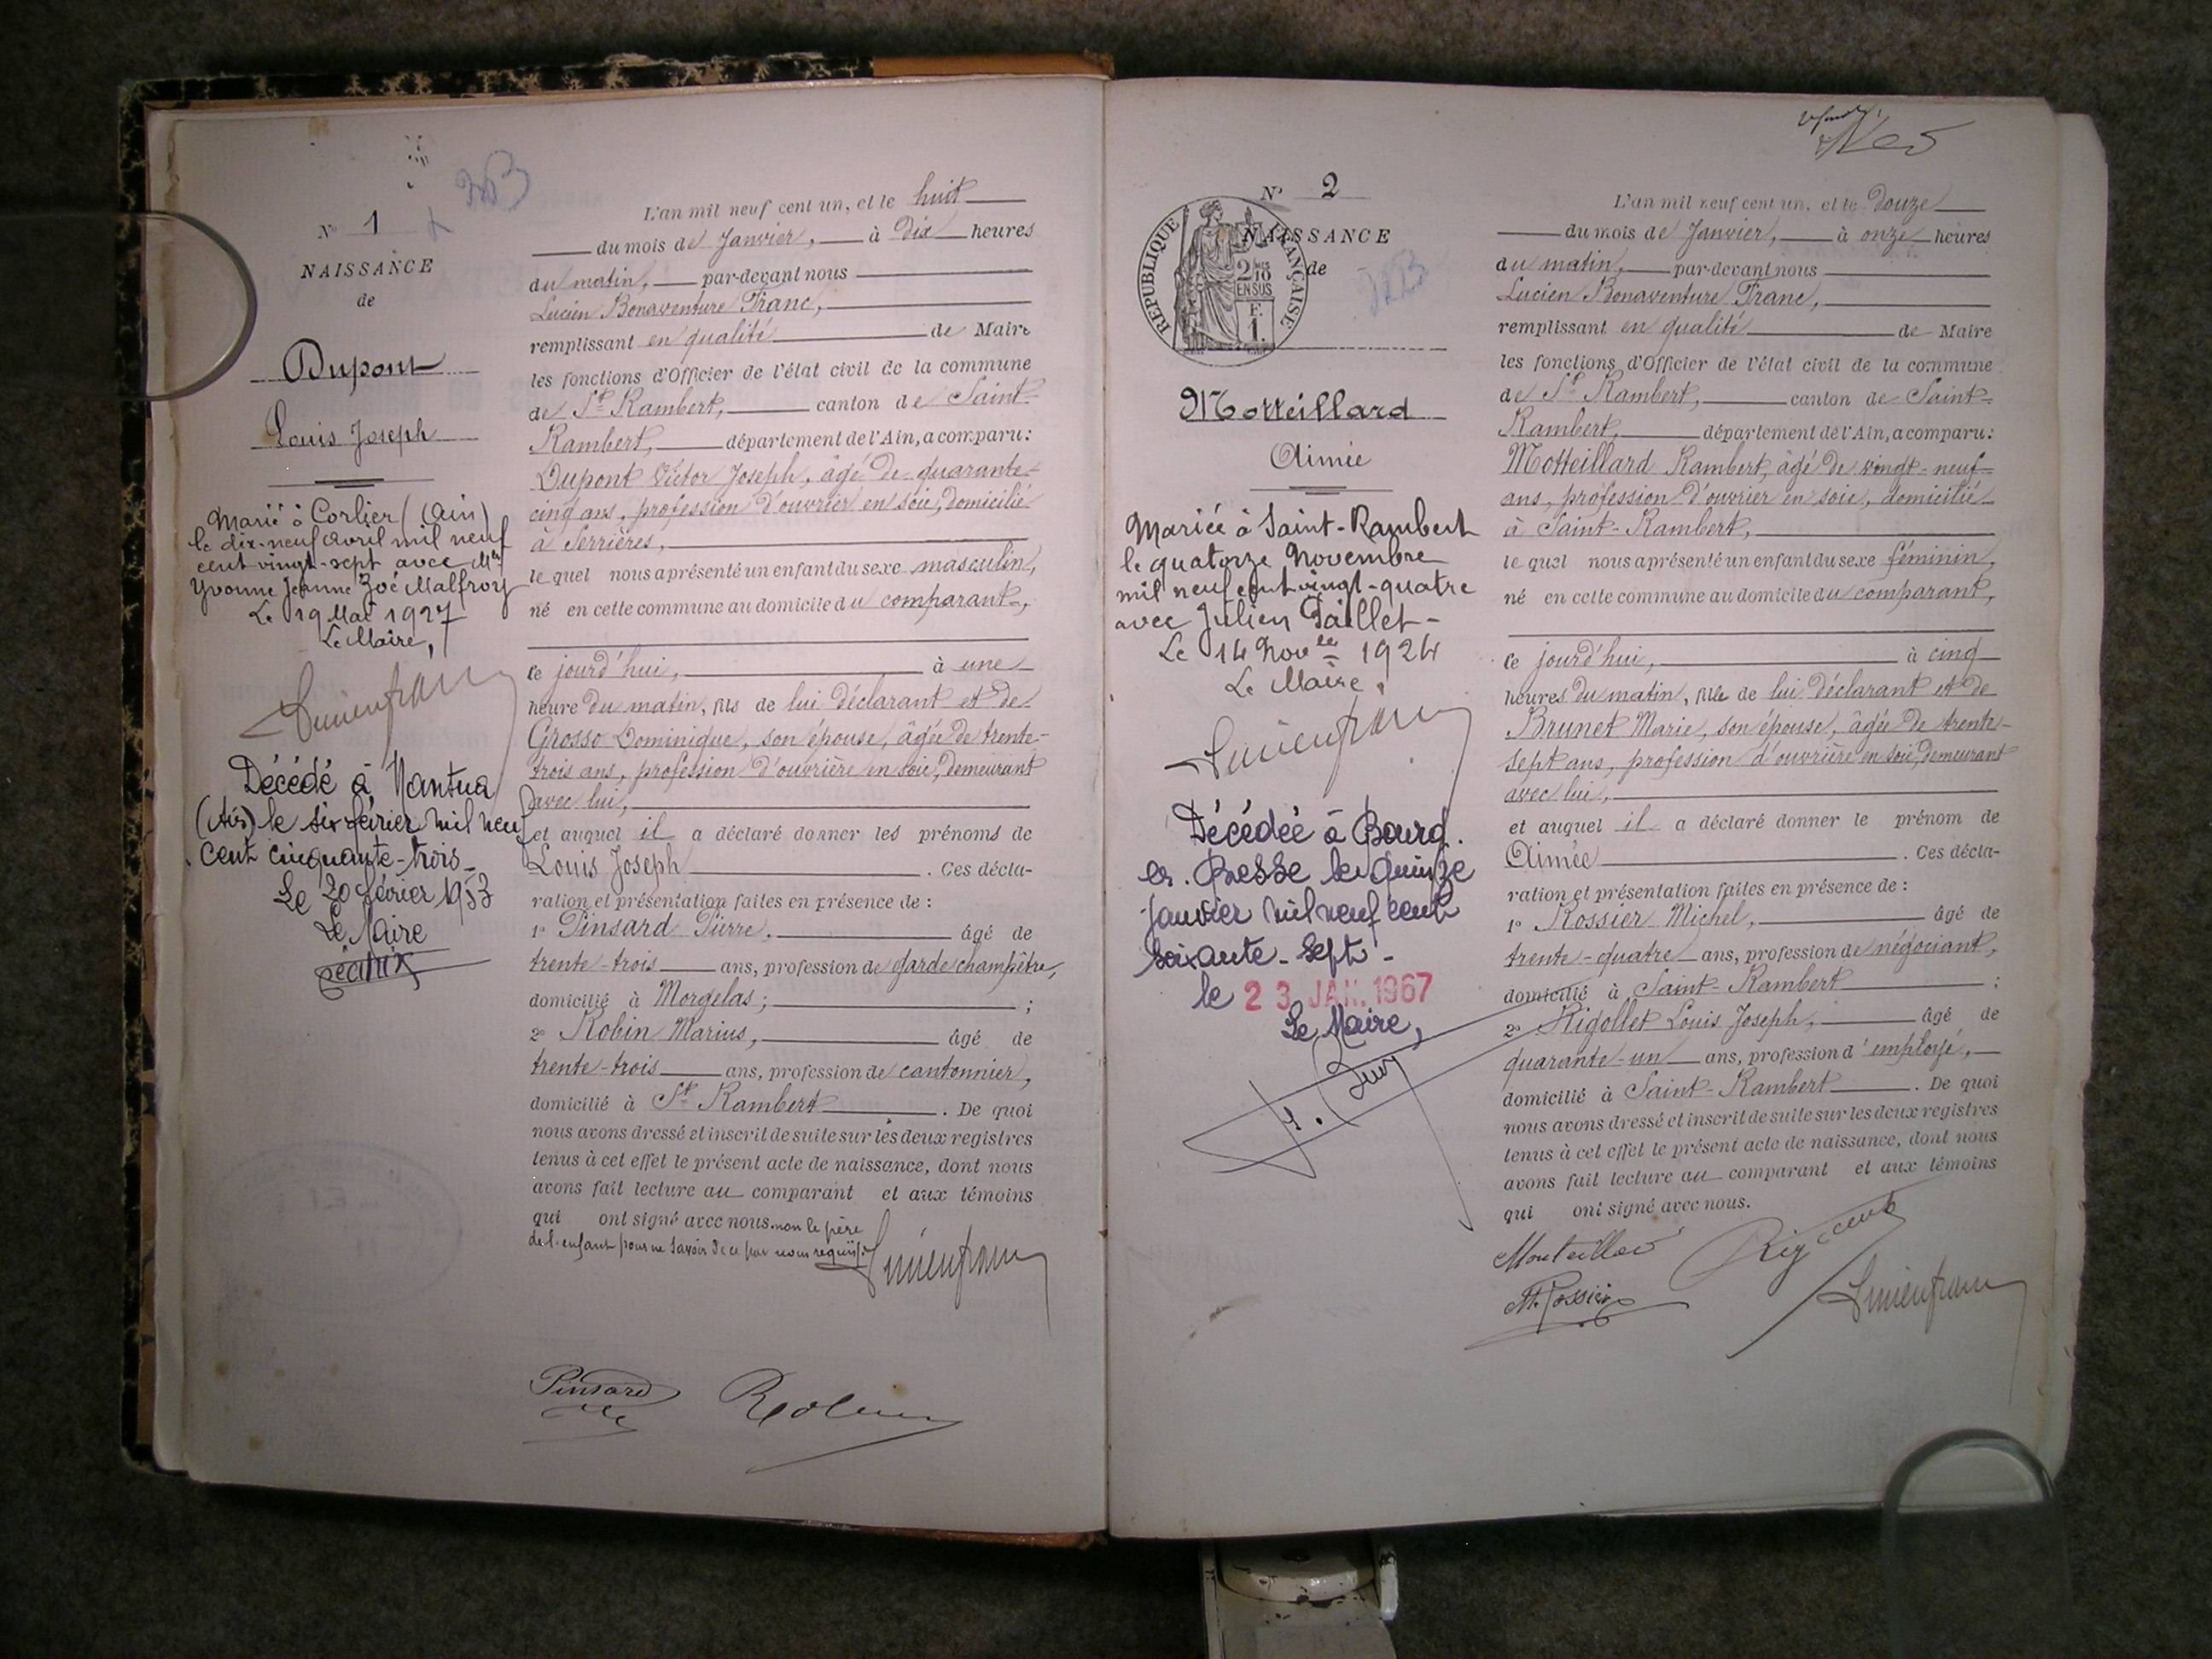 Nº 1
NAISSANCE
de
Dupont
Louis Joseph
Marié à Corlier (Ain)
le dix-neuf avril mil neuf
cent vingt-sept avec Mlle
Yvonne Jeanne Zoé Malfroy
Le 19 Mai 1927
Le Maire,
Lucien Franc
Décédé à Nantua
(Ain) le six février mil neuf
cent cinquante-trois
Le 20 février 1953
Le Maire
L'an mil neuf cent un, et le huit
du mois de Janvier, à Dix heures
du matin, par-devant nous
Lucien Bonaventure Franc,
remplissant en qualité de Maire
les fonctions d'Officier de l'état civil de la commune
de St Rambert, canton de Saint-
Rambert, département de l'Ain, a comparu:
Dupont Victor Joseph, âgé de quarante-
cinq ans, profession d'ouvrier en soie, domicilié
à Serrières,
le quel nous a présenté un enfant du sexe masculin,
né en cette commune au domicile du comparant,
ce jourd'hui, à une
heure du matin, fils de lui déclarant et de
Grosso Dominique, son épouse, âgée de trente-
trois ans, profession d'ouvrière en soie, demeurant
avec lui,
et auquel il a déclaré donner les prénoms de
Louis Joseph. Ces décla-
ration et présentation faites en présence de :
1º Pinsard Pierre, âgé de
trente-trois ans, profession de garde champêtre,
domicilié à Morgelas; ;
2º Robin Marius, âgé de
trente-trois ans, profession de cantonnier,
domicilié à St Rambert. De quoi
nous avons dressé et inscrit de suite sur les deux registres
tenus à cet effet le présent acte de naissance, dont nous
avons fait lecture au comparant et aux témoins
qui ont signé avec nous. non le père
de l'enfant pour ne savoir de ce par nous requis.
Lucien Franc
Pinsard Robin
Nº 2
NAISSANCE
de
RÉPUBLIQUE FRANÇAISE
2/10
EN SUS
F.
1.
Motteillard
Aimée
Mariée à Saint-Rambert
le quatorze Novembre
mil neuf cent vingt-quatre
avec Julien Paillet-
Le 14 Novbre 1924
Le Maire,
Lucien Franc
Décédée à Bourg.
en. Bresse le quinze
janvier mil neuf cent
soixante-sept-
le 23 JAN. 1967
Le Maire,
L'an mil neuf cent un, et le Douze
du mois de Janvier, à onze heures
du matin, par-devant nous
Lucien Bonaventure Franc,
remplissant en qualité de Maire
les fonctions d'Officier de l'état civil de la commune
de St Rambert, canton de Saint-
Rambert, département de l'Ain, a comparu:
Motteillard Rambert, âgé de vingt-neuf
ans, profession d'ouvrier en soie, domicilié
à Saint-Rambert,
le quel nous a présenté un enfant du sexe féminin,
né en cette commune au domicile du comparant,
ce jourd'hui, à cinq
heures du matin, fille de lui déclarant et de
Brunet Marie, son épouse, âgée de trente-
sept ans, profession d'ouvrière en soie, demeurant
avec lui,
et auquel il a déclaré donner le prénom de
Aimée. Ces décla-
ration et présentation faites en présence de :
1º Rossier Michel, âgé de
trente-quatre ans, profession de négociant,
domicilié à Saint-Rambert ;
2º Rigollet Louis Joseph, âgé de
quarante-un ans, profession d'employé,
domicilié à Saint-Rambert. De quoi
nous avons dressé et inscrit de suite sur les deux registres
tenus à cet effet le présent acte de naissance, dont nous
avons fait lecture au comparant et aux témoins
qui ont signé avec nous.
M. Rossier
Lucien Franc